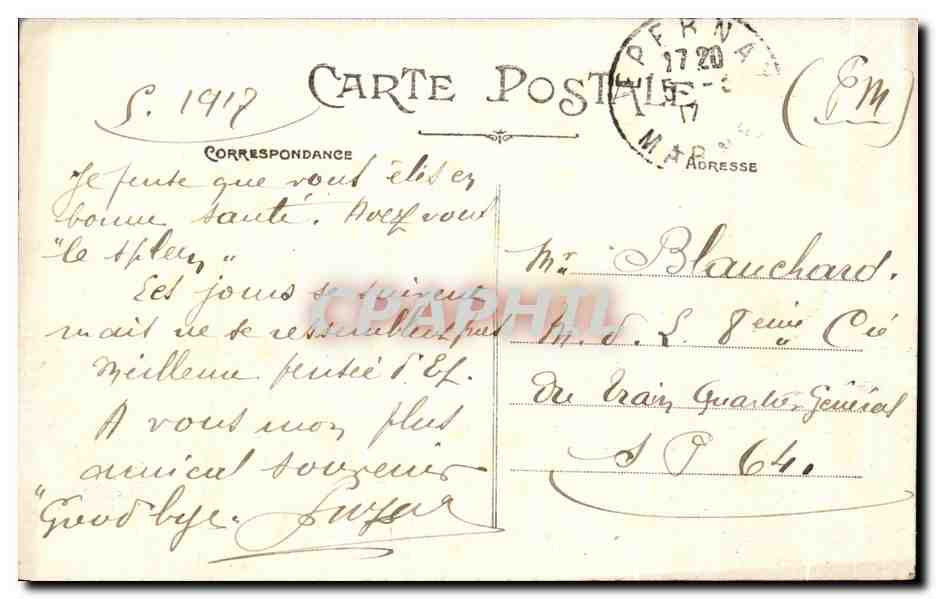 5. 1917
CARTE POSTALE
EPERNAY
17 20
5 -
17
MARNE
(FM)
CORRESPONDANCE
ADRESSE
Je pense que vous êtes en
bonne santé. Avez vous
"le spleen"
Les jours se suivent
mais ne se ressemblent pas
Meilleure pensée d'Ep.
A vous mon plus
amical souvenir
"Good bye.
Mr Blanchard.
M. d. L. 8eme Cie
du Train Quartier Général
S P 64.
CPAPHIL